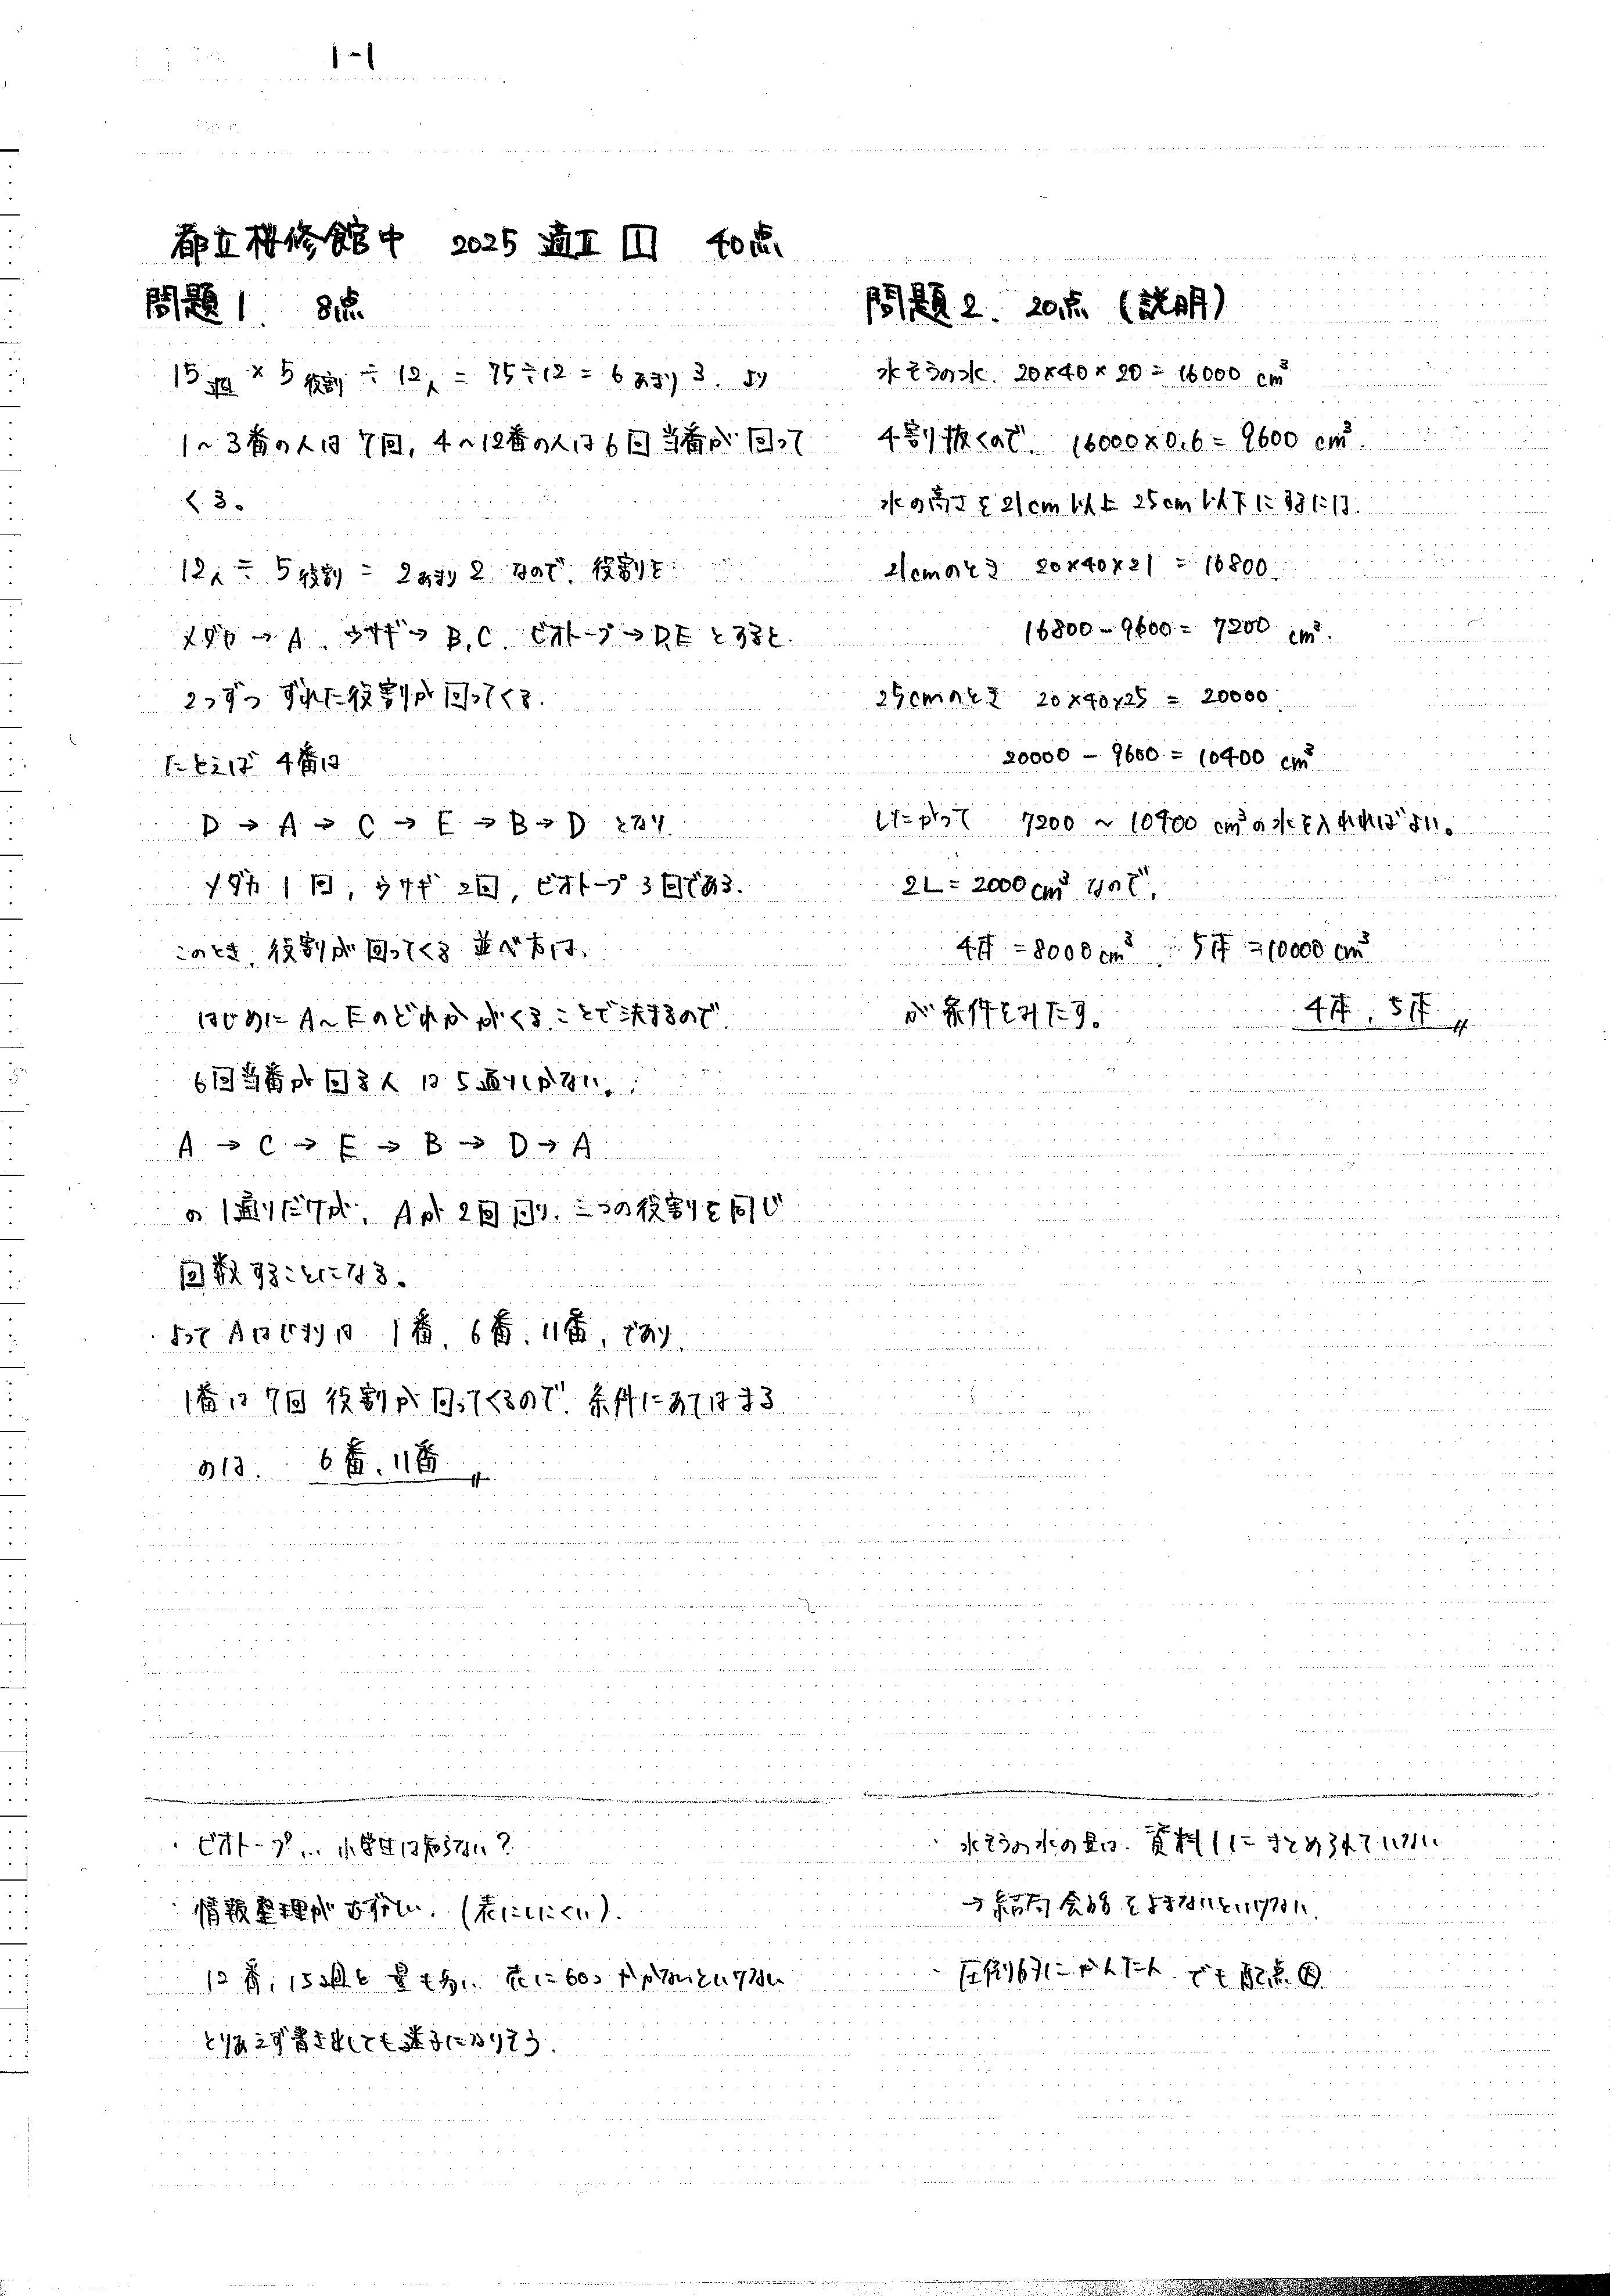 1-1
都立桜修館中 2025 適Ⅱ 1 40点
問題1. 8点
15週 × 5役割 ÷ 12人 = 75÷12 = 6あまり3. より
1~3番の人は7回, 4~12番の人は6回当番が回って
くる。
12人 ÷ 5役割 = 2あまり2 なので, 役割を
メダカ→A, ウサギ→B,C, ビオトープ→D,E とすると,
2つずつ ずれた役割が回ってくる.
たとえば 4番は
D → A → C → E → B → D となり,
メダカ1回, ウサギ2回, ビオトープ3回である.
このとき, 役割が回ってくる並べ方は,
はじめにA~Eのどれかがくることで決まるので
6回当番が回る人は5通りしかない。
A → C → E → B → D → A
の1通りだけが, Aが2回回り, 三つの役割を同じ
回数することになる。
よってAはじまりは 1番, 6番, 11番, であり,
1番は7回役割が回ってくるので, 条件にあてはまる
のは. 6番, 11番
問題2. 20点 (説明)
水そうの水. 20×40×20 = 16000 cm³
4割抜くので, 16000×0.6 = 9600 cm³.
水の高さを21cm以上25cm以下にするには.
21cmのとき 20×40×21 = 16800
16800-9600 = 7200 cm³.
25cmのとき 20×40×25 = 20000
20000 - 9600 = 10400 cm³
したがって 7200 ~ 10400 cm³の水を入れればよい。
2L = 2000cm³ なので,
4杯 = 8000cm³ 5杯 = 10000cm³
が条件をみたす。 4杯, 5杯
・ビオトープ... 小学生は知らない?
情報整理がむずい. (表にしにくい).
12番, 15週と量も多い. 表に60コマかかないといけない
とりあえず書き出しても迷子になりそう.
・水そうの水の量は, 資料1にまとめられていない
→結局会話をよまないといけない.
圧倒的にかんたん. でも配点大